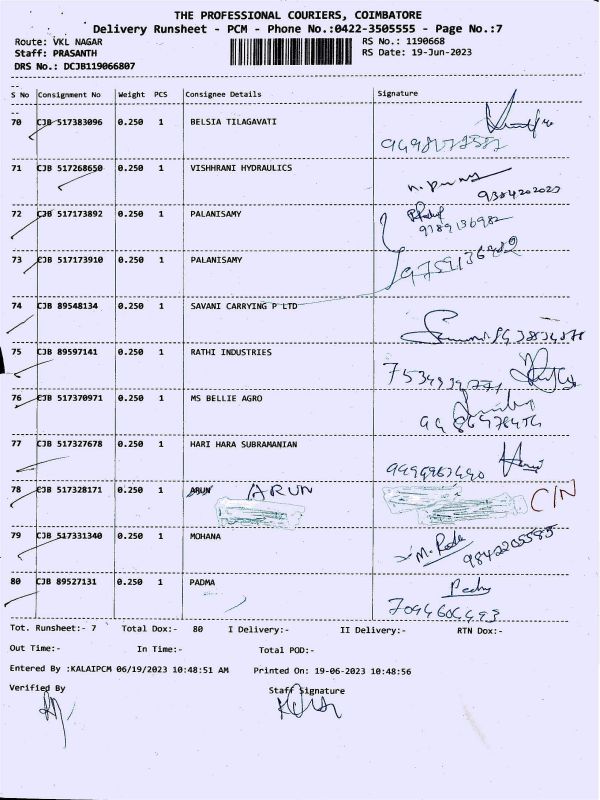 THE PROFESSIONAL COURIERS, COIMBATORE
Delivery Runsheet - PCM - Phone No.:0422-3505555 - Page No.:7
Route: VKL NAGAR RS No.: 1190668
Staff: PRASANTH RS Date: 19-Jun-2023
DRS No.: DCJB119066807
S No Consignment No Weight PCS Consignee Details Signature
70 CJB 517383096 0.250 1 BELSIA TILAGAVATI
71 CJB 517268650 0.250 1 VISHHRANI HYDRAULICS
9384202023
72 CJB 517173892 0.250 1 PALANISAMY
9789136982
73 CJB 517173910 0.250 1 PALANISAMY
74 CJB 89548134 0.250 1 SAVANI CARRYING P LTD
75 CJB 89597141 0.250 1 RATHI INDUSTRIES
76 CJB 517370971 0.250 1 MS BELLIE AGRO
77 CJB 517327678 0.250 1 HARI HARA SUBRAMANIAN
78 CJB 517328171 0.250 1 ARUN ARUN C/N
79 CJB 517331340 0.250 1 MOHANA
9842205585
80 CJB 89527131 0.250 1 PADMA
7094604493
Tot. Runsheet:- 7 Total Dox:- 80 I Delivery:- II Delivery:- RTN Dox:-
Out Time:- In Time:- Total POD:-
Entered By :KALAIPCM 06/19/2023 10:48:51 AM Printed On: 19-06-2023 10:48:56
Verified By Staff Signature